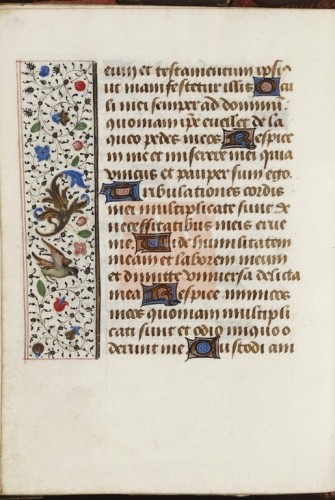 eum et testamentum ipsi(us)
ut manifestetur illis Ocu
li mei semper ad dominū.
quoniam ip̄e euellet de la
queo pedes meos Respice
in me et miserere mei quia
vnicus et pauper sum ego.
Tribulationes cordis
mei multiplicate sunt de
necessitatibus meis erue
me Vide humilitatem
meam et laborem meum
et dimitte vniuersa delicta
mea Respice inimicos
meos quoniam multipli
cati sunt et odio iniquo o
derunt me Custodi am